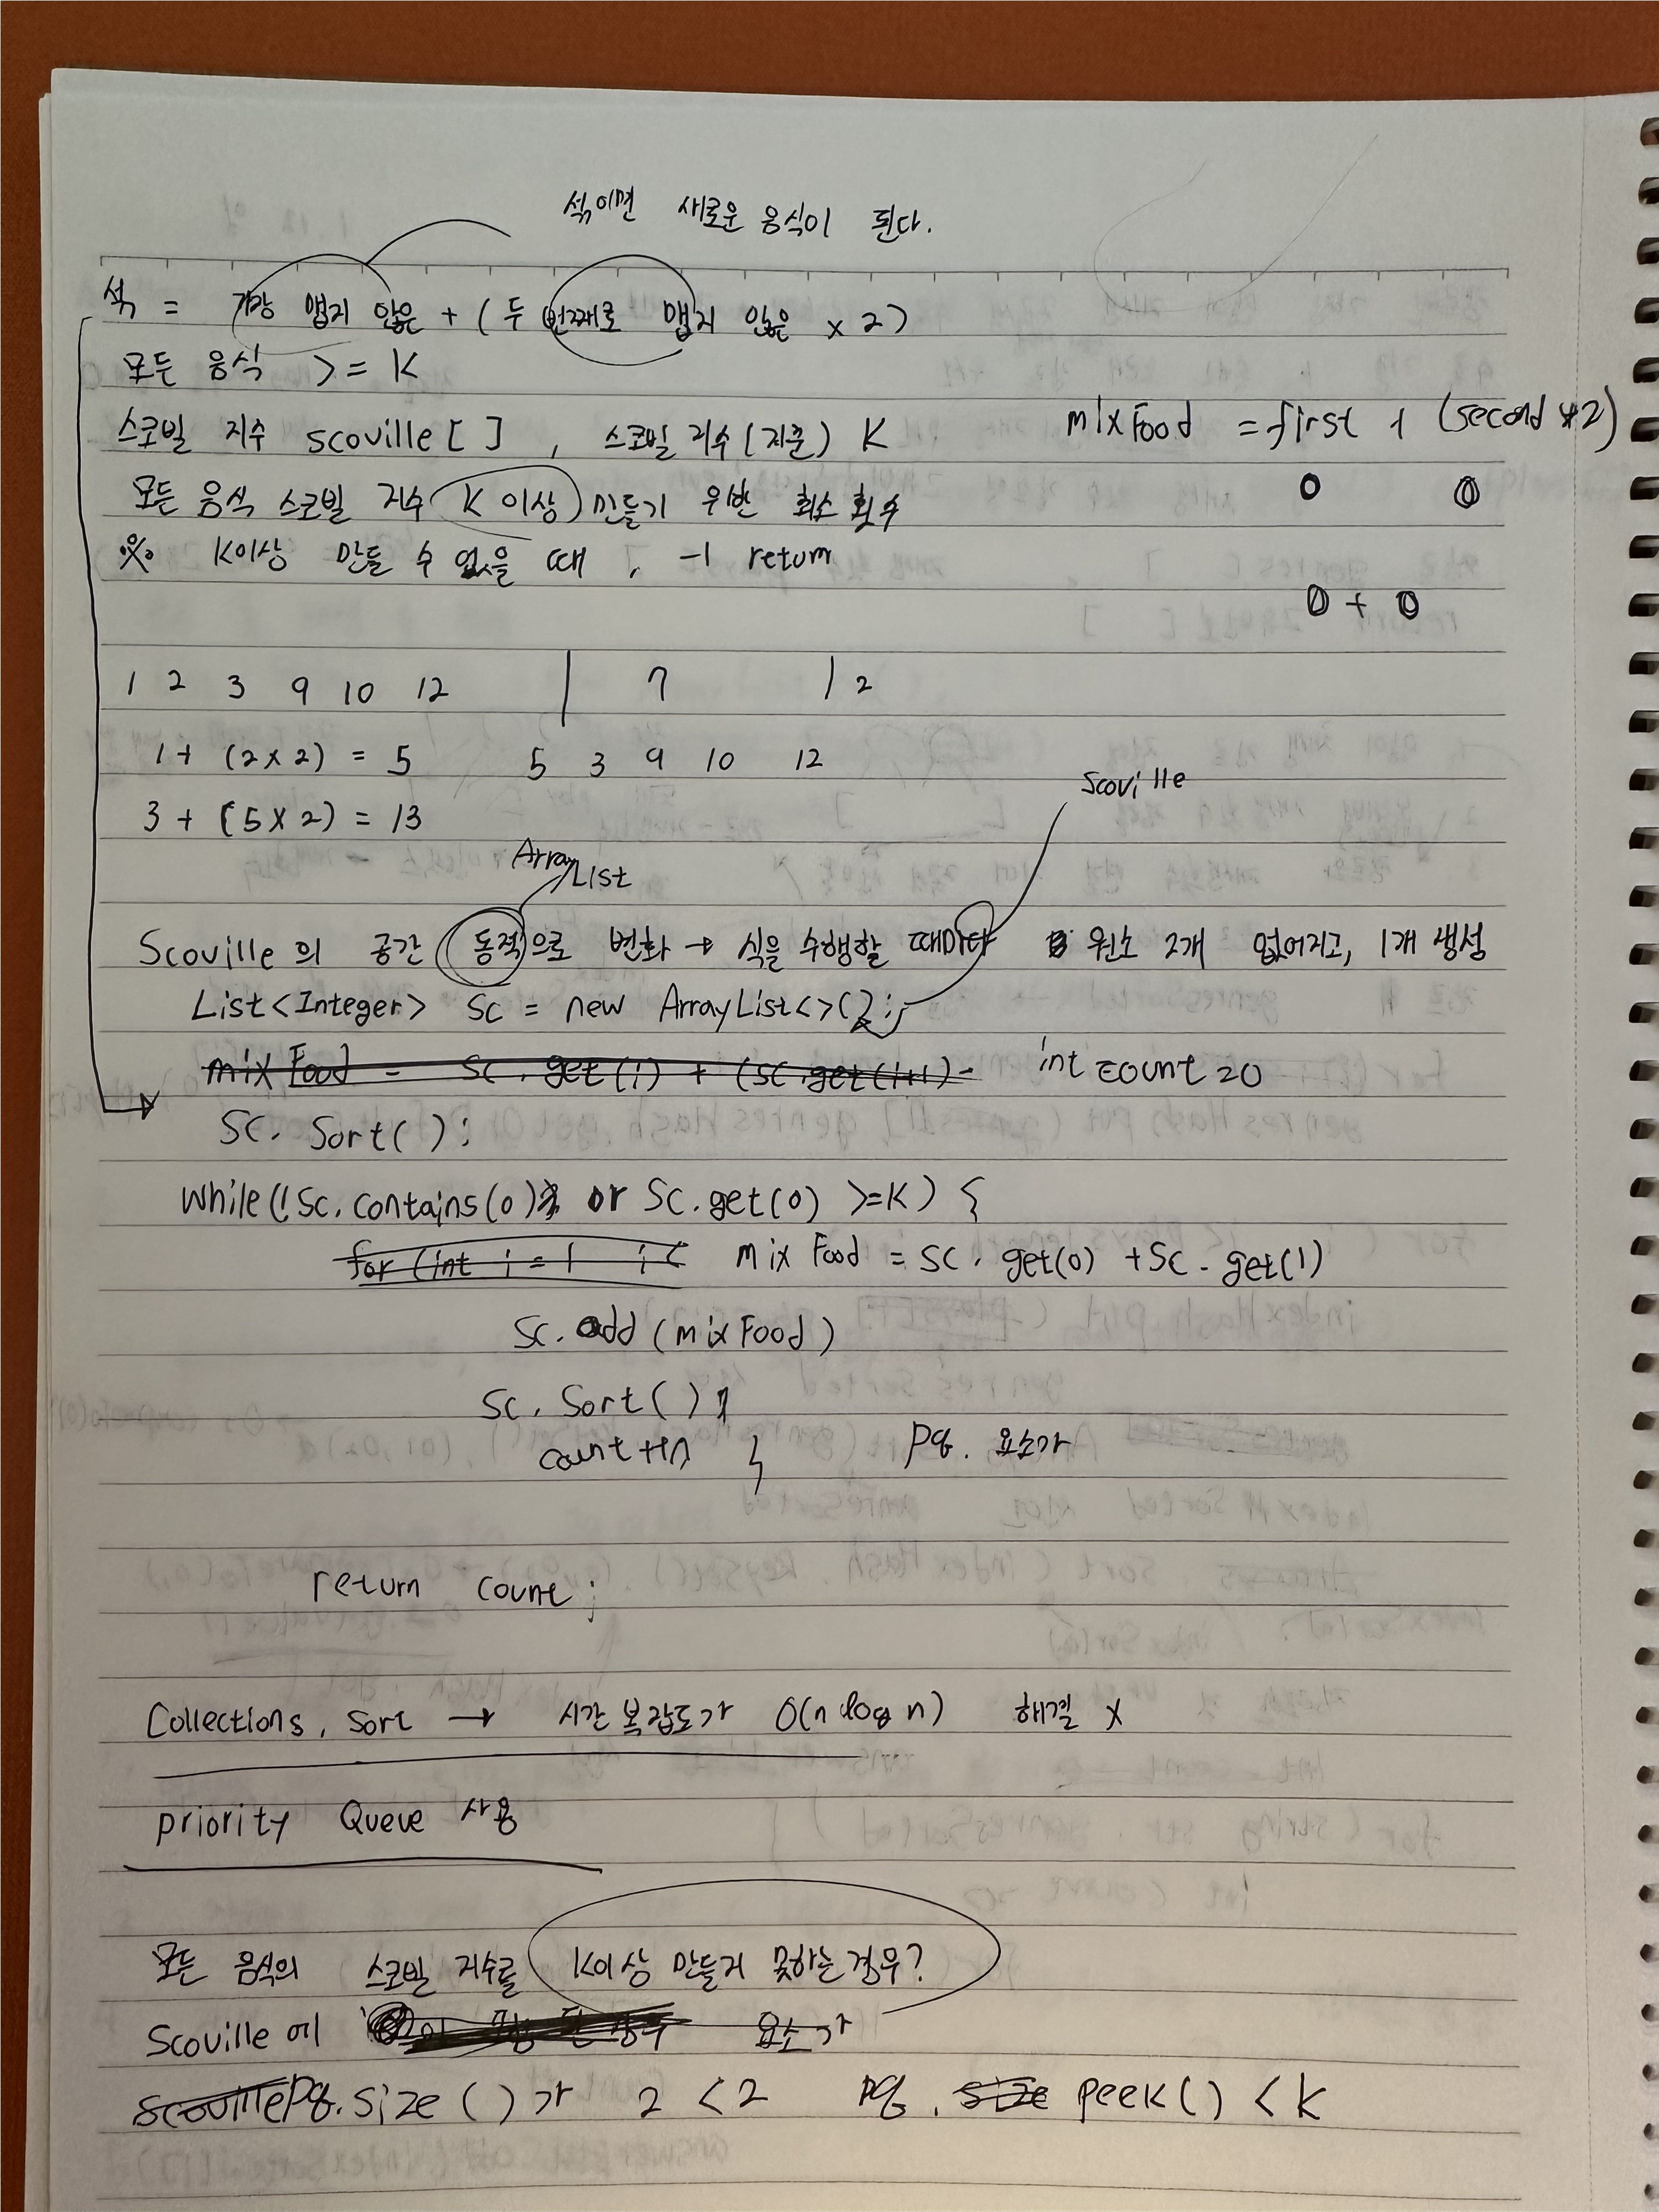 섞이면 새로운 음식이 된다.
식 = 가장 맵지 않은 + ( 두 번째로 맵지 않은 x 2)
모든 음식 >= K
스코빌 지수 scoville [ ] , 스코빌 지수 (기준) K
mix Food = first + (second * 2)
모든 음식 스코빌 지수 K 이상 만들기 위한 최소 횟수
0 0
※ K이상 만들 수 없을 때 , -1 return
0 + 0
1 2 3 9 10 12 | 7 | 2
1 + (2 x 2) = 5 5 3 9 10 12
Scoville
3 + (5 x 2) = 13
Array List
Scoville 의 공간 동적으로 변화 → 식을 수행할 때마다 원소 2개 없어지고, 1개 생성
List<Integer> Sc = new ArrayList<>();
mix Food = Sc. get(i) + (Sc.get(i+1) int count = 0
Sc. Sort( );
While(!Sc. contains(0) or Sc.get(0) >=K) {
for (int i = 1 i < mix Food = Sc. get(0) + Sc. get(1)
Sc. add (mix Food)
Sc. Sort( );
count ++; } Pq. 요소가
return count;
Collections. Sort → 시간 복잡도가 O(n log n) 해결 x
Priority Queue 사용
모든 음식의 스코빌 지수를 K이상 만들지 못하는 경우?
Scoville 에 요소가
scoville Pq. size ( ) 가 2 < 2 pq . size peek( ) < K